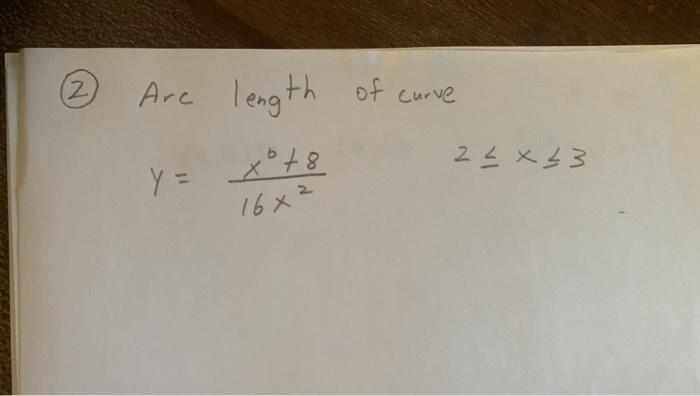 ② Arc length of curve
y = (x^6 + 8) / (16x^2) 2 ≤ x ≤ 3